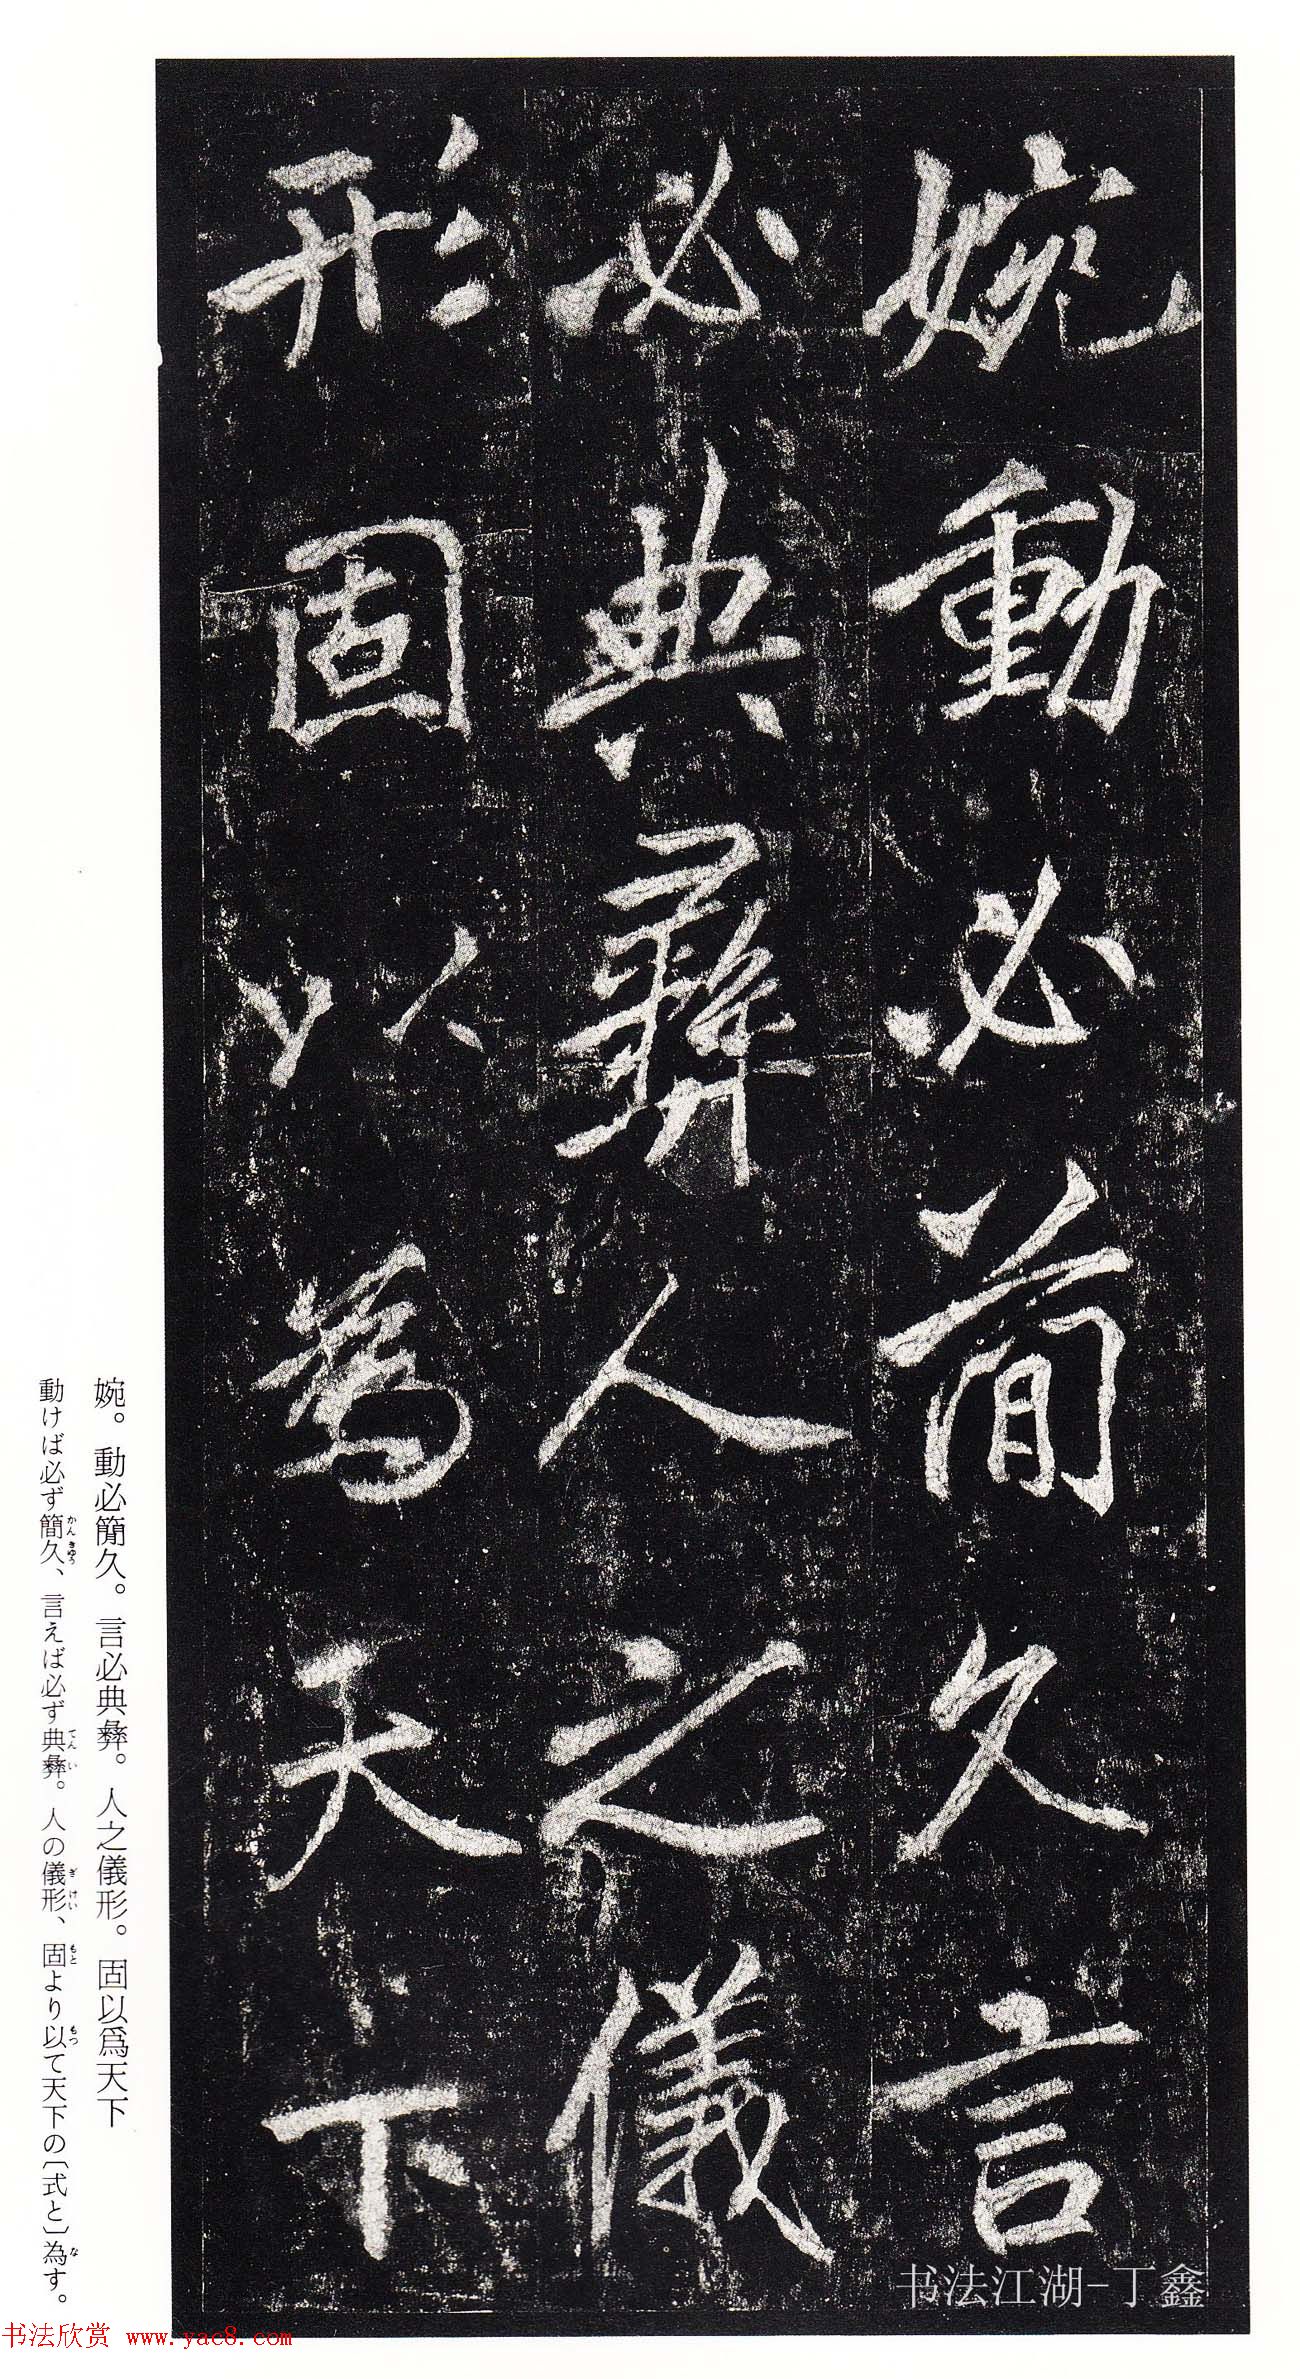 婉動必簡久言
必典彝人之儀
形固以爲天下
婉。動必簡久。言必典彝。人之儀形。固以爲天下
動けば必ず簡久、言えば必ず典彝。人の儀形、固より以て天下の〔式と〕為す。
かんきゅう
てんい
ぎけい
もと
もっ
な
书法江湖-丁鑫
书法欣赏 www.yac8.com